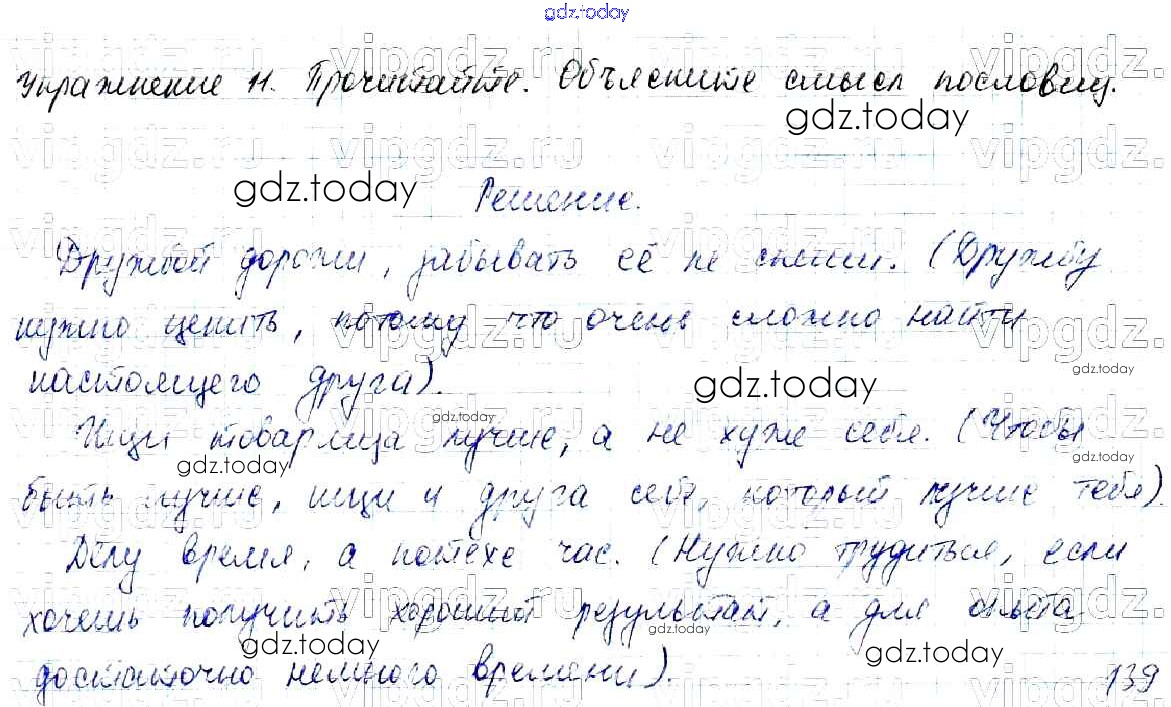 gdz.today
Упражнение 11. Прочитайте. Объясните смысл пословиц.
gdz.today
gdz.today
Решение.
Дружбой дорожи, забывать её не спеши. (Дружбу
нужно ценить, потому что очень сложно найти
настоящего друга).
gdz.today
gdz.today
Ищи товарища лучше, а не хуже себя. (Чтобы
gdz.today
gdz.today
быть лучше, ищи и друга себе, который лучше тебя).
Делу время, а потехе час. (Нужно трудиться, если
хочешь получить хороший результат, а для
gdz.today
gdz.today
gdz.today
достаточно немного времени).
139
vipgdz.ru